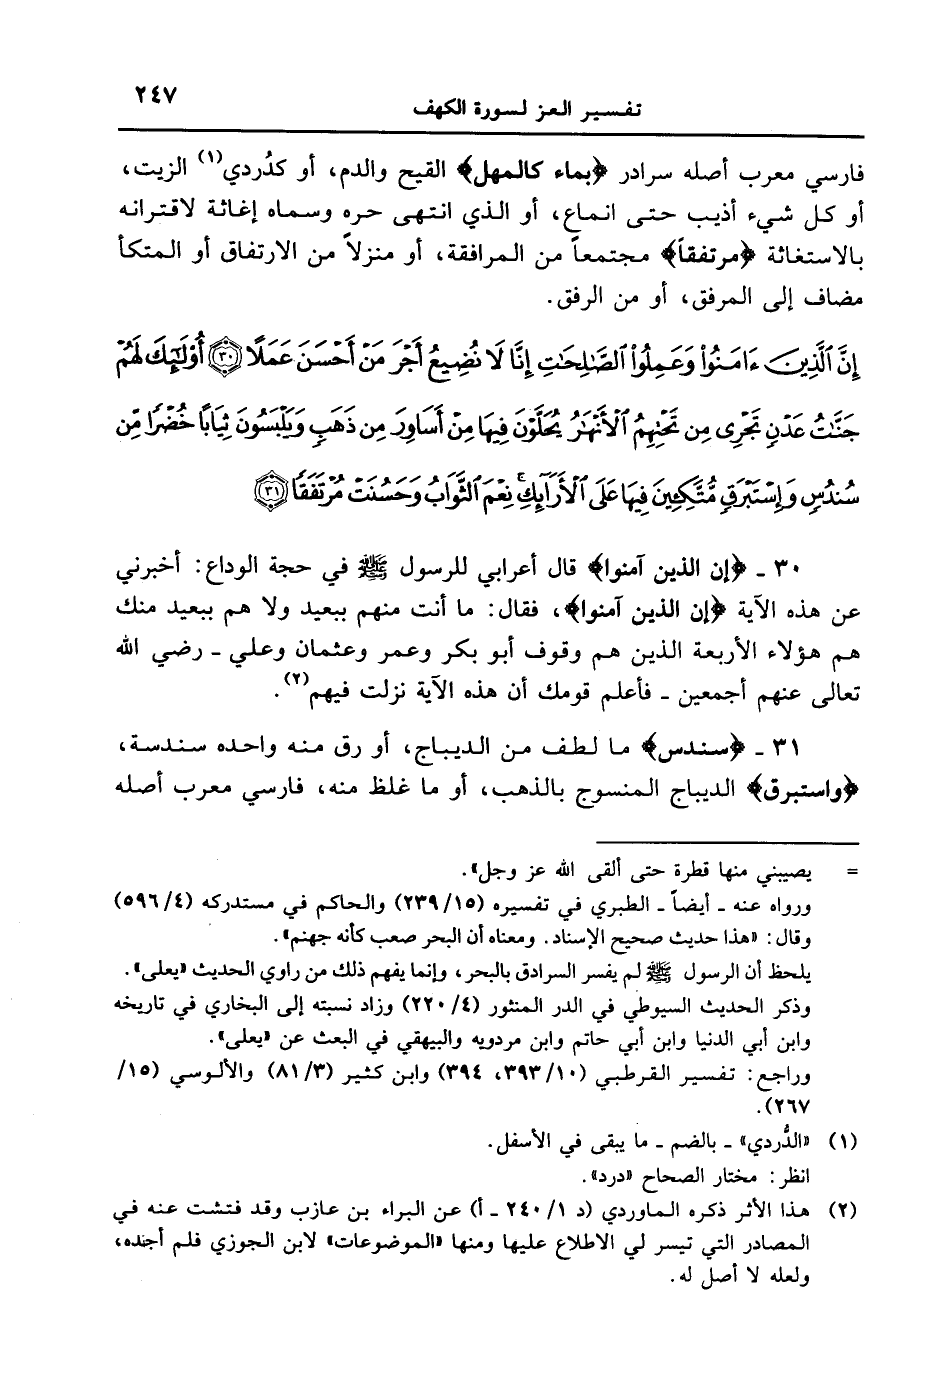 تفسير العز لسورة الكهف ٢٤٧
فارسي معرب أصله سرادر ﴿بماء كالمهل﴾ القيح والدم، أو كدُردي(١) الزيت،
أو كل شيء أذيب حتى انماع، أو الذي انتهى حره وسماه إغاثة لاقترانه
بالاستغاثة ﴿مرتفقاً﴾ مجتمعاً من المرافقة، أو منزلاً من الارتفاق أو المتكأ
مضاف إلى المرفق، أو من الرفق.
إِنَّ ٱلَّذِينَ ءَامَنُوا۟ وَعَمِلُوا۟ ٱلصَّـٰلِحَـٰتِ إِنَّا لَا نُضِيعُ أَجْرَ مَنْ أَحْسَنَ عَمَلًا ﴿٣٠﴾ أُو۟لَـٰٓئِكَ لَهُمْ
جَنَّـٰتُ عَدْنٍ تَجْرِى مِن تَحْتِهِمُ ٱلْأَنْهَـٰرُ يُحَلَّوْنَ فِيهَا مِنْ أَسَاوِرَ مِن ذَهَبٍ وَيَلْبَسُونَ ثِيَابًا خُضْرًا مِّن
سُندُسٍ وَإِسْتَبْرَقٍ مُّتَّكِـِٔينَ فِيهَا عَلَى ٱلْأَرَآئِكِ ۚ نِعْمَ ٱلثَّوَابُ وَحَسُنَتْ مُرْتَفَقًا ﴿٣١﴾
٣٠ ـ ﴿إن الذين آمنوا﴾ قال أعرابي للرسول ﷺ في حجة الوداع: أخبرني
عن هذه الآية ﴿إن الذين آمنوا﴾، فقال: ما أنت منهم ببعيد ولا هم ببعيد منك
هم هؤلاء الأربعة الذين هم وقوف أبو بكر وعمر وعثمان وعلي ـ رضي الله
تعالى عنهم أجمعين ـ فأعلم قومك أن هذه الآية نزلت فيهم(٢).
٣١ ـ ﴿سندس﴾ ما لطف من الديباج، أو رق منه واحده سندسة،
﴿واستبرق﴾ الديباج المنسوج بالذهب، أو ما غلظ منه، فارسي معرب أصله
= يصيبني منها قطرة حتى ألقى الله عز وجل».
ورواه عنه ـ أيضاً ـ الطبري في تفسيره (٢٣٩/١٥) والحاكم في مستدركه (٥٩٦/٤)
وقال: «هذا حديث صحيح الإسناد. ومعناه أن البحر صعب كأنه جهنم».
يلحظ أن الرسول ﷺ لم يفسر السرادق بالبحر، وإنما يفهم ذلك من راوي الحديث «يعلى».
وذكر الحديث السيوطي في الدر المنثور (٢٢٠/٤) وزاد نسبته إلى البخاري في تاريخه
وابن أبي الدنيا وابن أبي حاتم وابن مردويه والبيهقي في البعث عن «يعلى».
وراجع: تفسير القرطبي (٣٩٣/١٠، ٣٩٤) وابن كثير (٨١/٣) والألوسي (١٥/
٢٦٧).
(١) «الدُّردي» ـ بالضم ـ ما يبقى في الأسفل.
انظر: مختار الصحاح «درد».
(٢) هذا الأثر ذكره الماوردي (د ٢٤٠/١ ـ أ) عن البراء بن عازب وقد فتشت عنه في
المصادر التي تيسر لي الاطلاع عليها ومنها «الموضوعات» لابن الجوزي فلم أجنده،
ولعله لا أصل له.